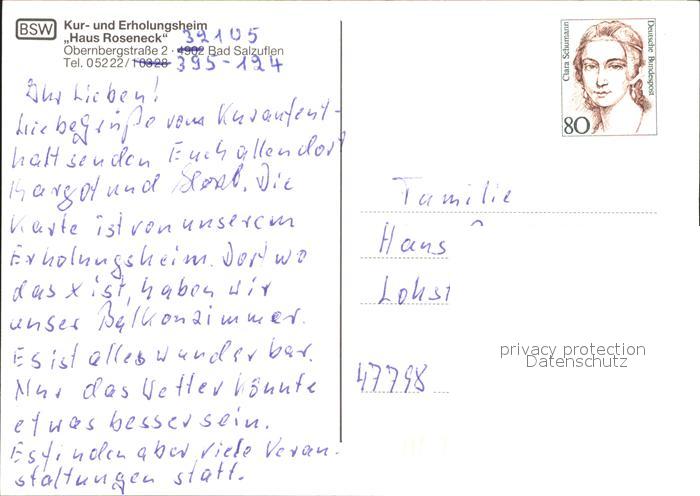 BSW
Kur- und Erholungsheim
„Haus Roseneck“ 32105
Obernbergstraße 2 · 4902 Bad Salzuflen
Tel. 05222/10328 395-124
Ihr Lieben!
Liebegrüße vom Kuraufent-
halt senden Euch allen dort
Margot und
Die
Karte ist von unserem
Erholungsheim. Dort wo
das x ist, haben wir
unser Balkonzimmer.
Es ist alles wunderbar.
Nur das Wetter könnte
etwas besser sein.
Es finden aber viele Veran-
staltungen statt.
Clara Schumann
Deutsche Bundespost
80
Familie
Hans
Lohst
47798
privacy protection
Datenschutz